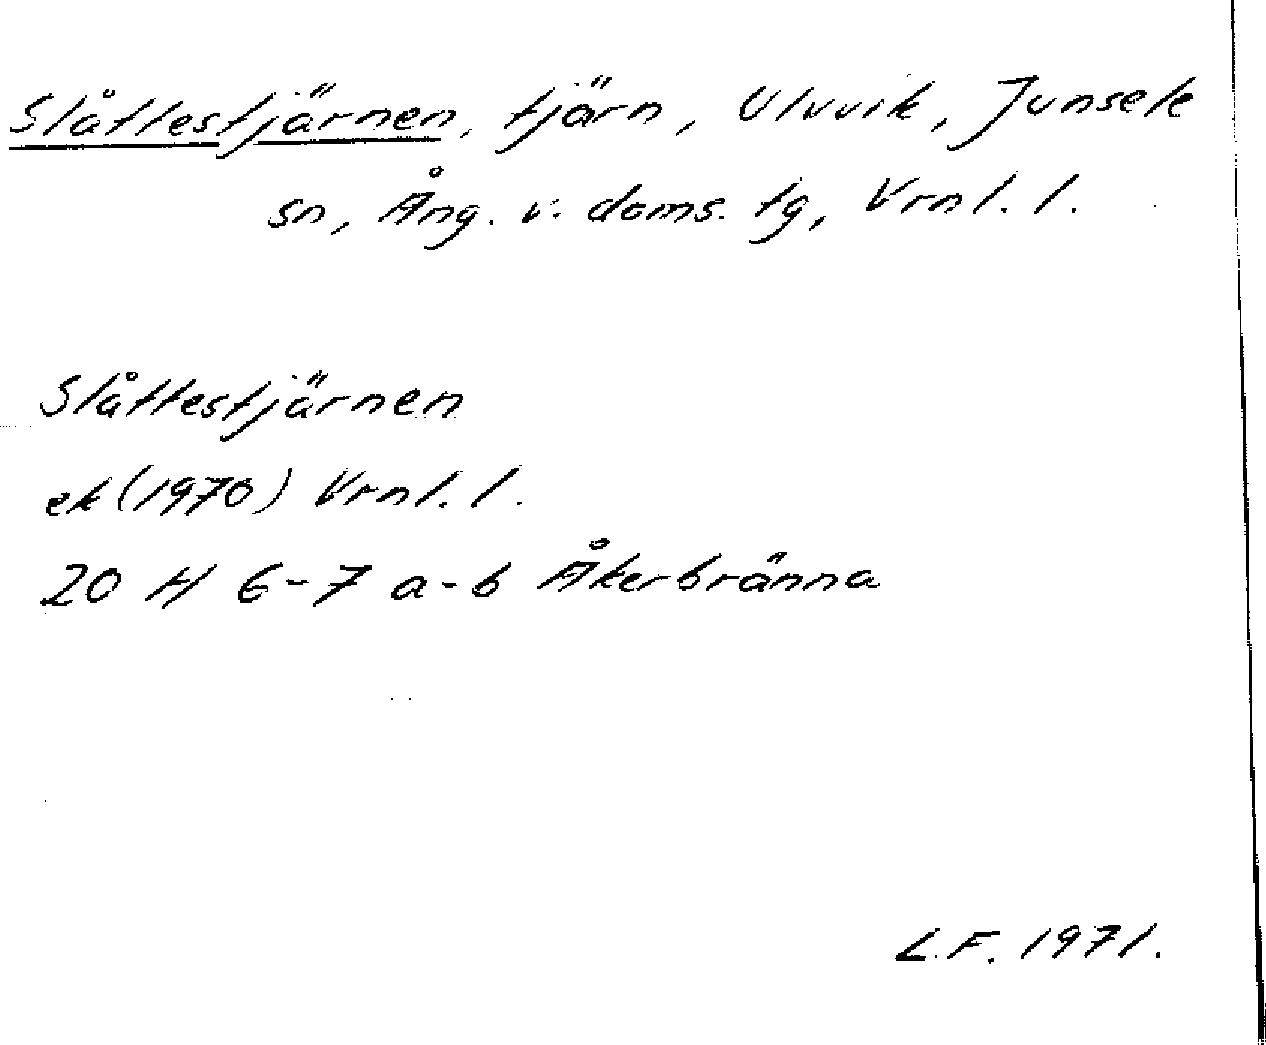 Slåttestjärnen, tjärn, Ulvvik, Junsele
sn, Ång. v. doms. tg, Vrnl. l.
Slåttestjärnen
ek (1970) Vrnl. l.
20 H 6-7 a-b Åkerbränna
L.F. 1971.